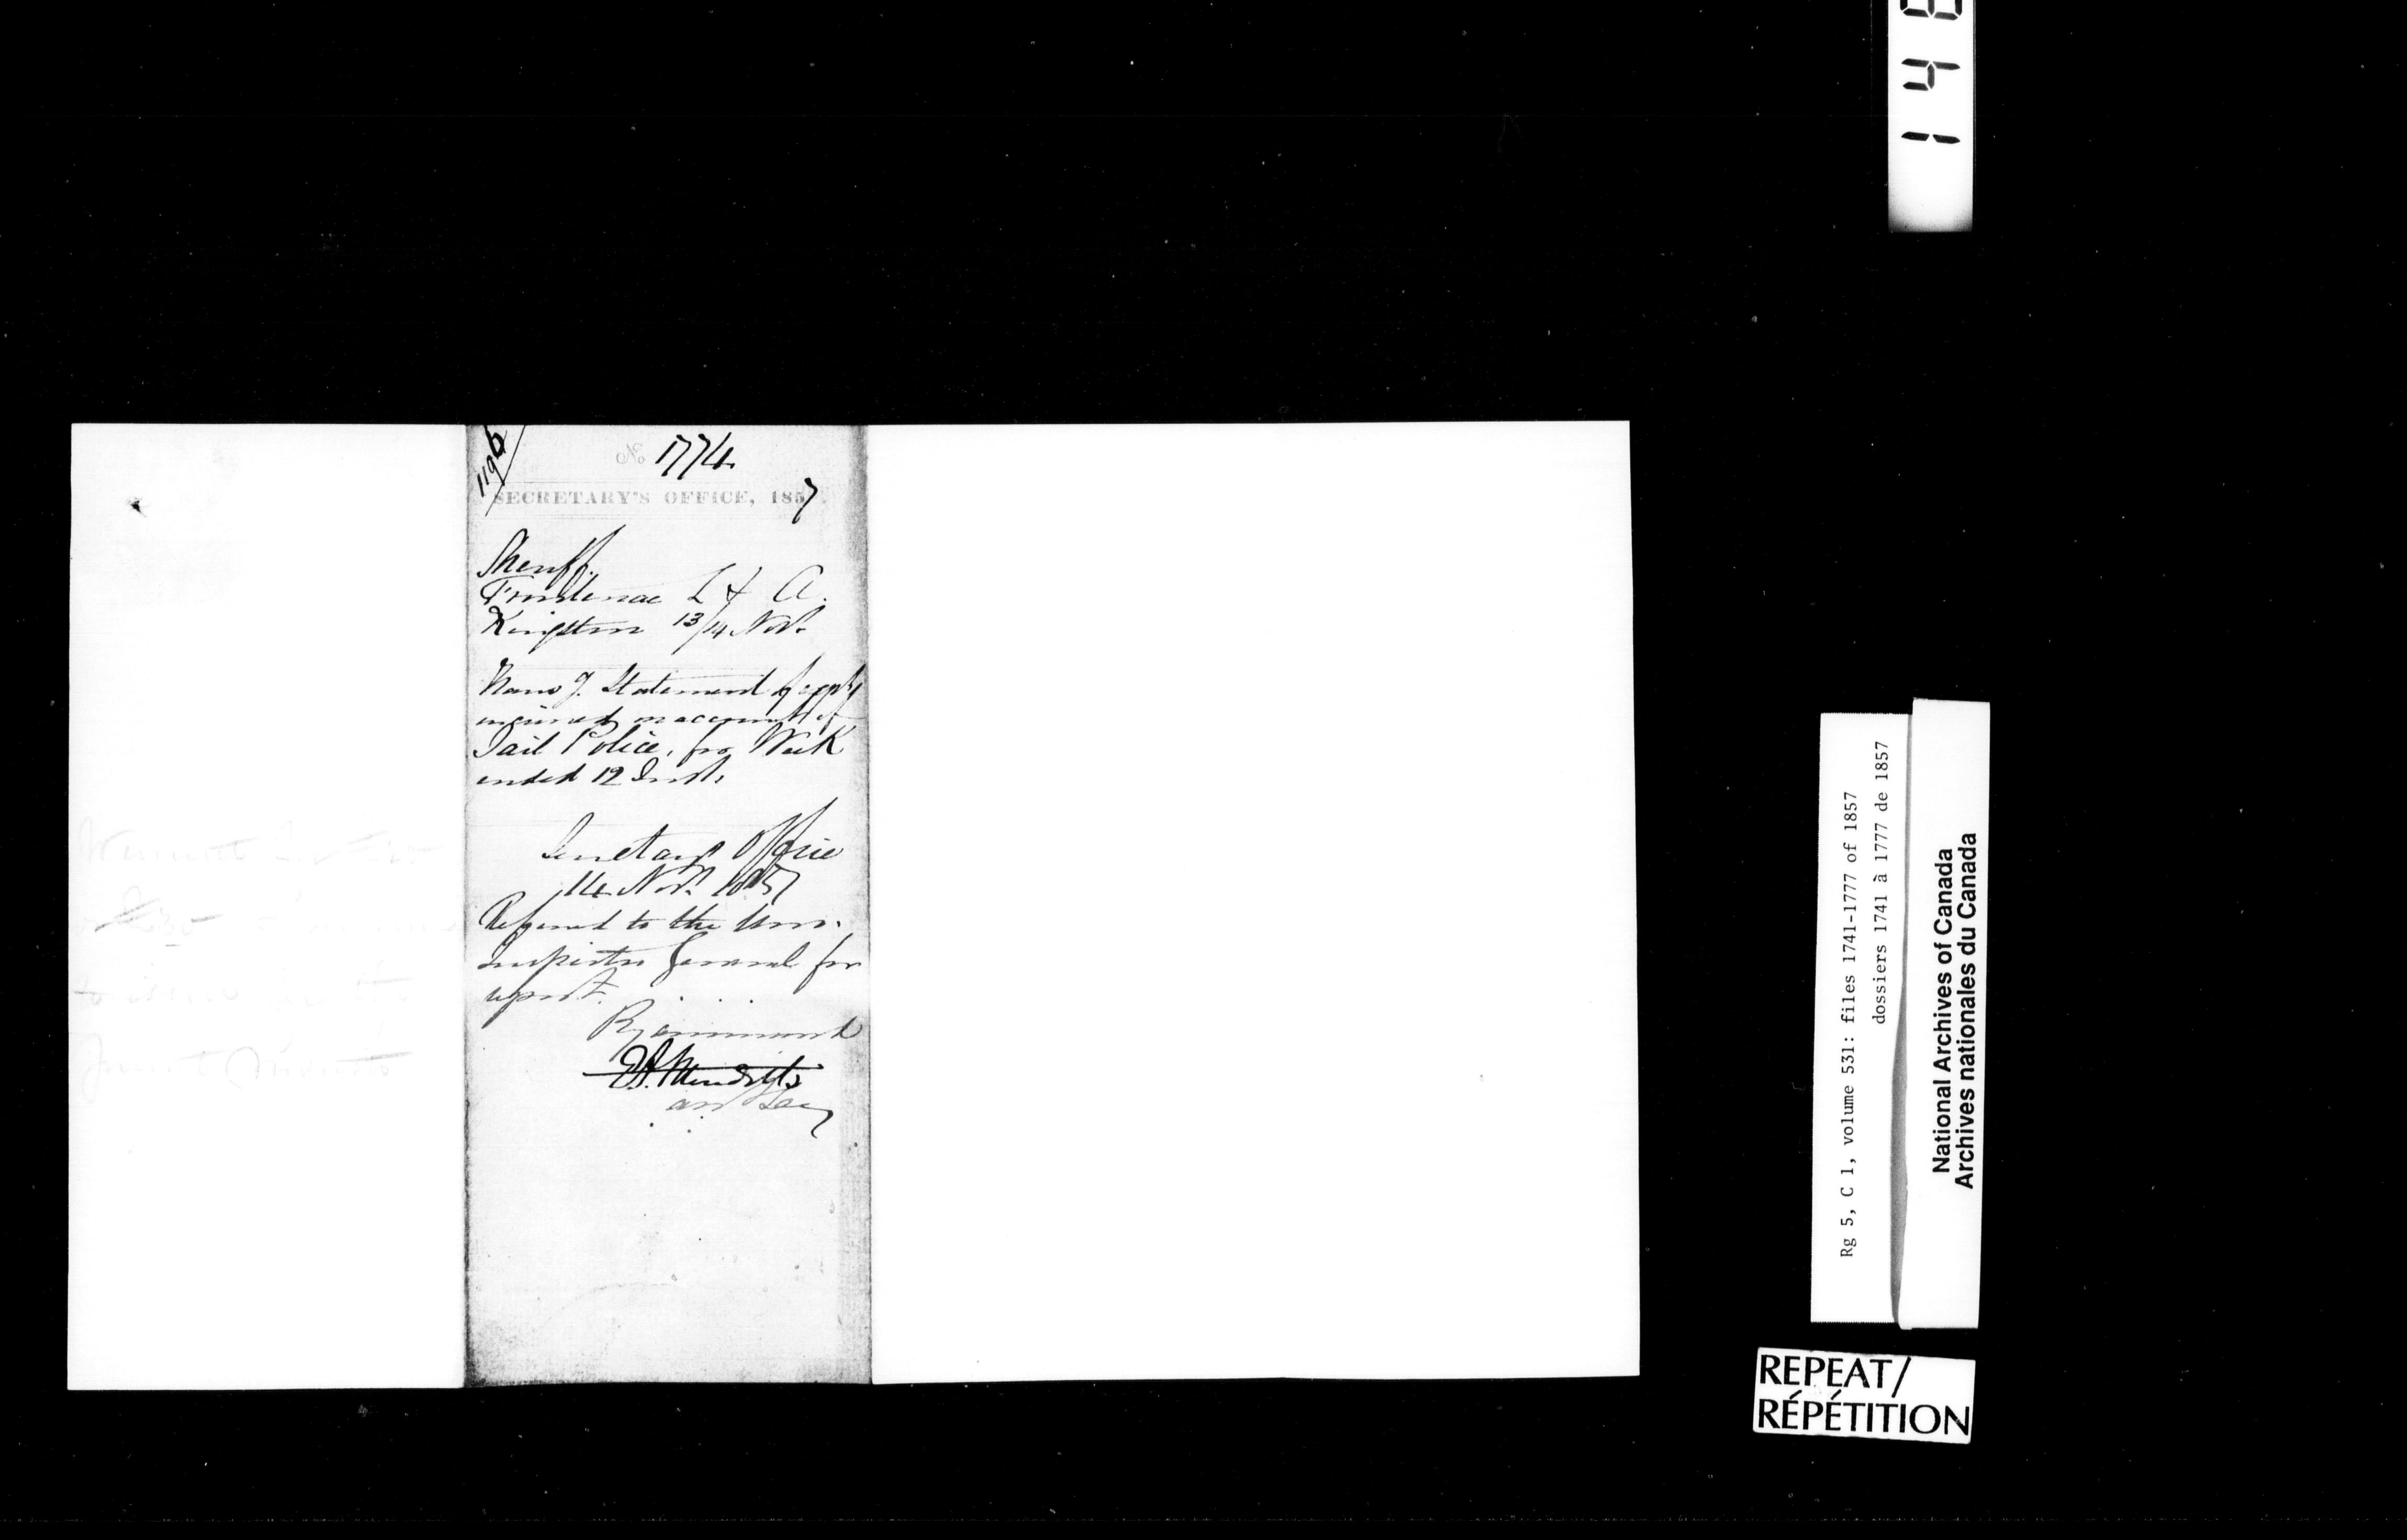 1196
No 1774
SECRETARY'S OFFICE, 1857.
Sheriff.
Frontenac L & A.
Kingston 13/14 Nov.
Trans g. Statement of exps
incurred on account of
Jail Police, for Week
ended 12 Inst.
Secretary's Office
14 Nov. 1857
Referred to the Hon.
Inspector General for
report.
By command
E A Meredith
ass Secy
Rg 5, C 1, volume 531: files 1741-1777 of 1857
dossiers 1741 à 1777 de 1857
National Archives of Canada
Archives nationales du Canada
REPEAT/
RÉPÉTITION